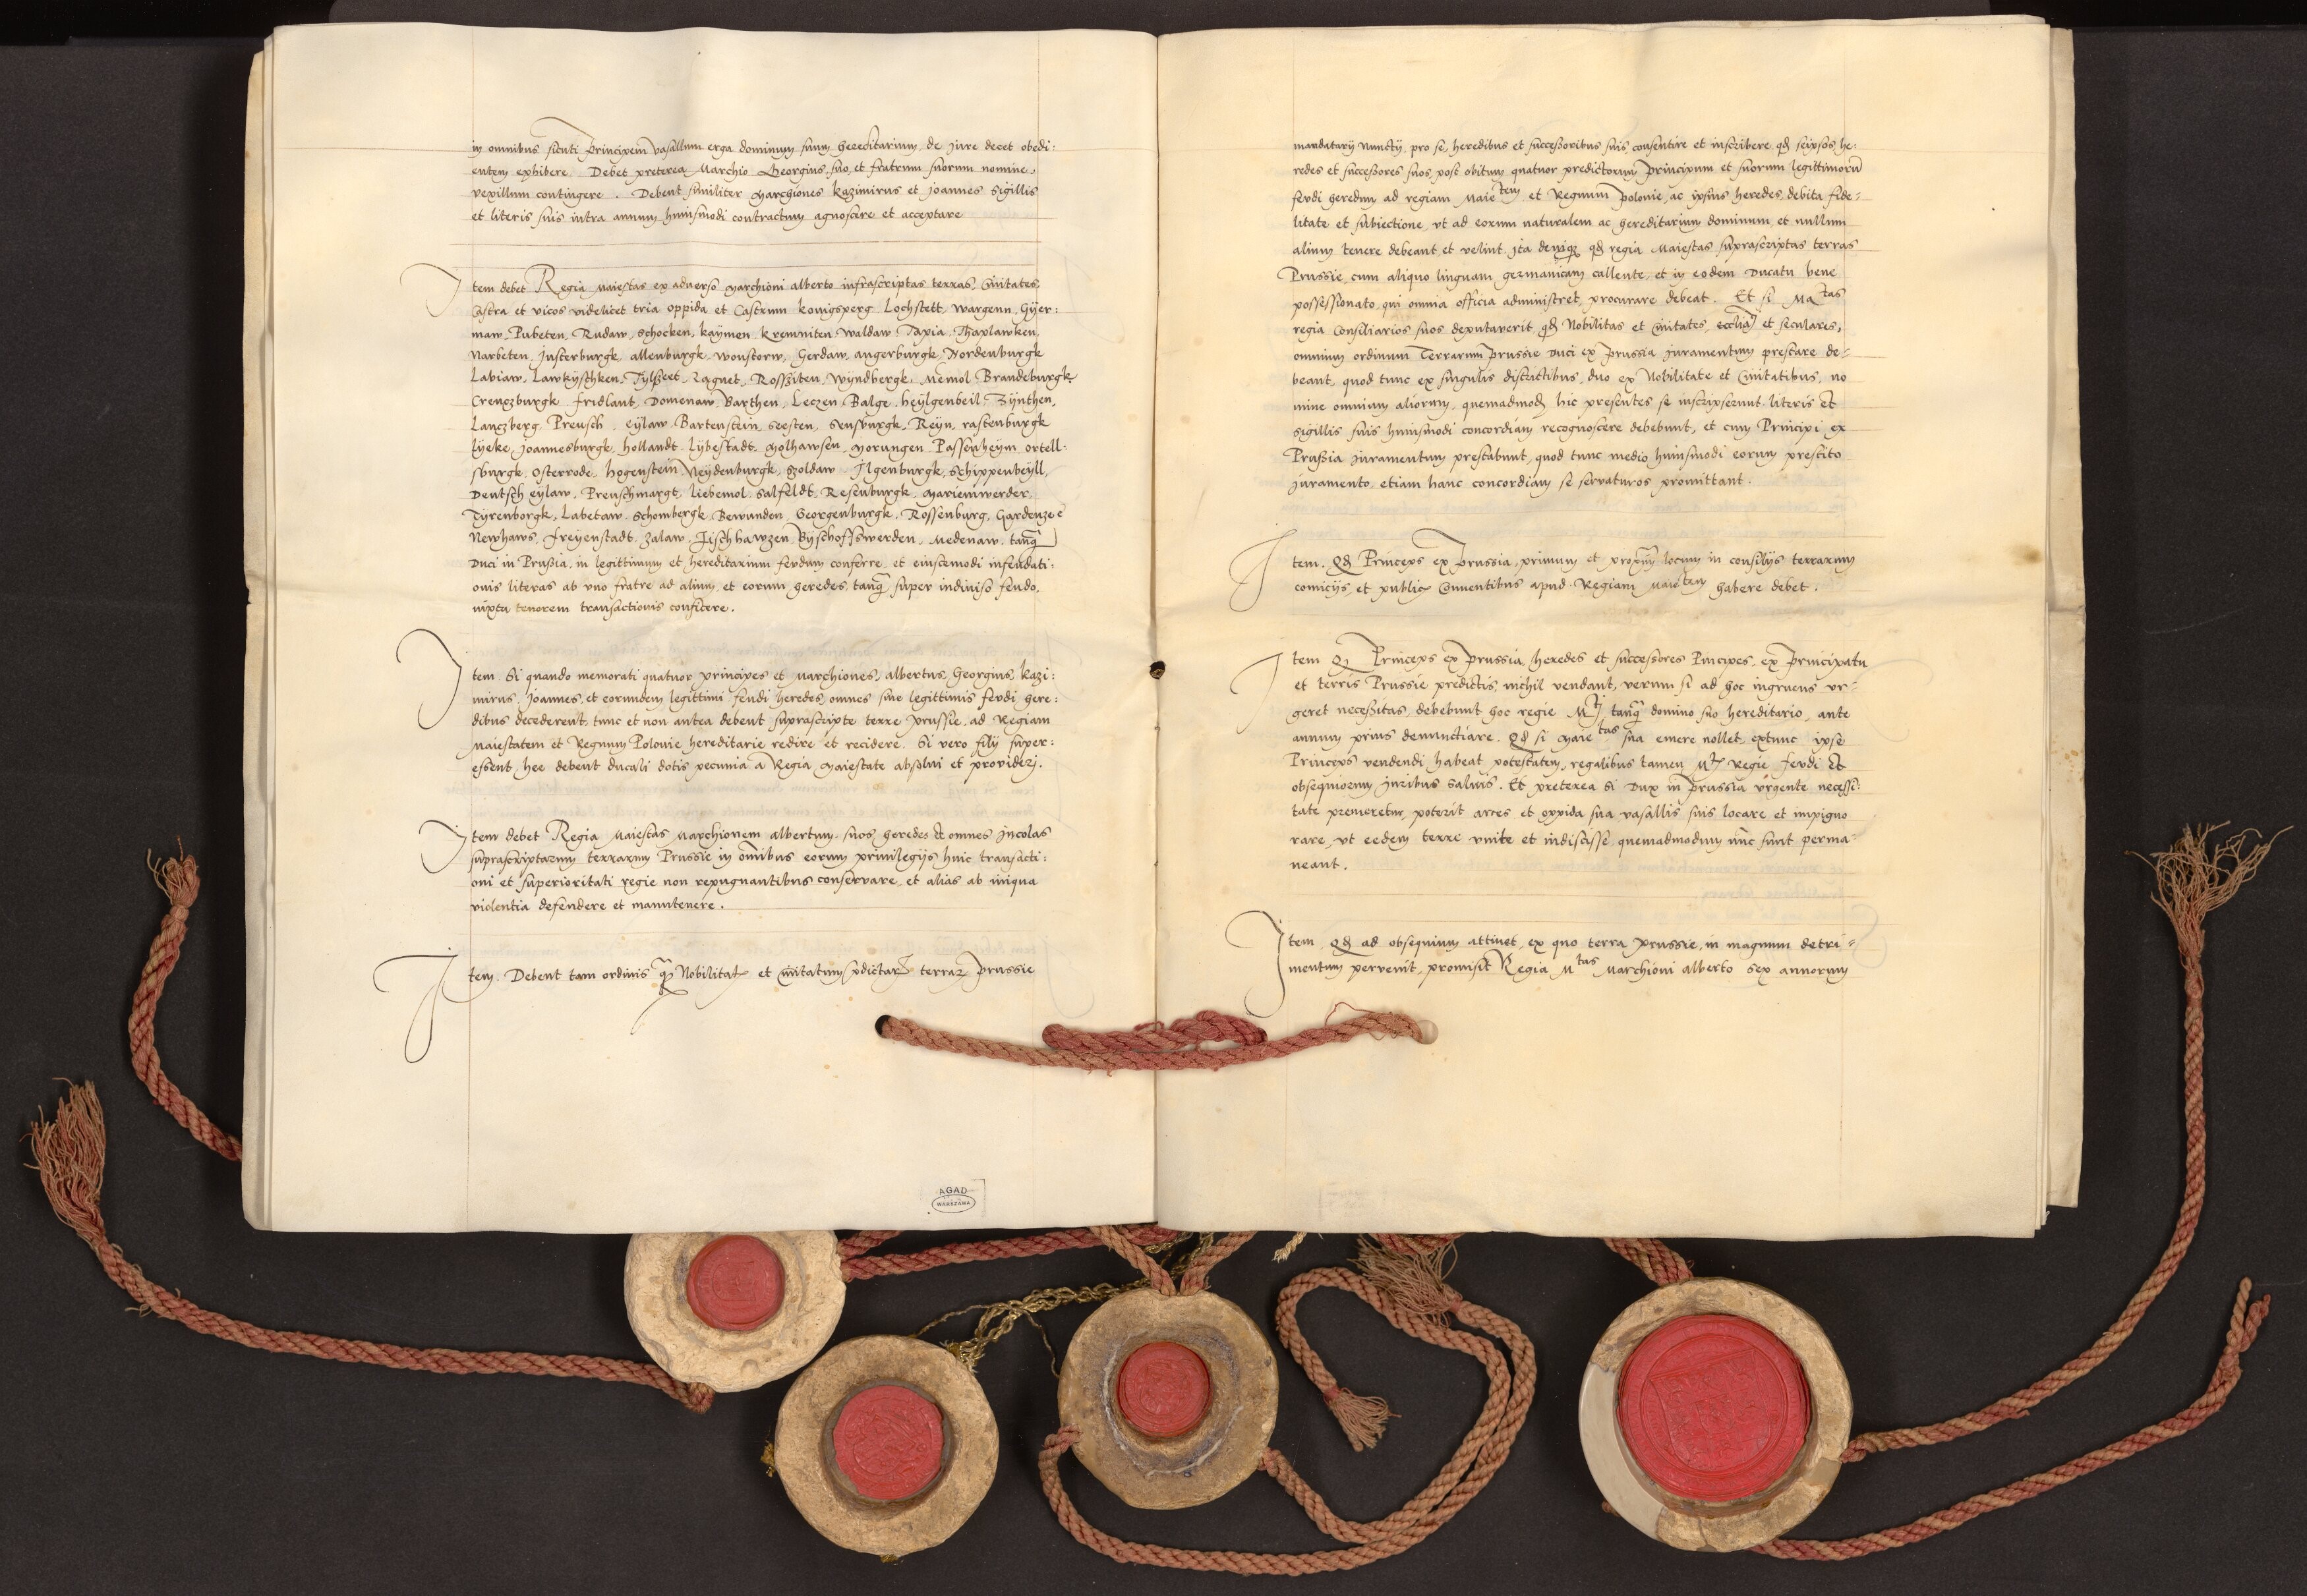 in omnibus sicuti Principem vasallum erga dominum suum hereditarium, de jure decet obedi:
entem exhibere. Debet preterea Marchio Georgius suo, et fratrum suorum nomine,
vexillum contingere. Debent similiter Marchiones Kazimirus et Joannes Sigillis
et literis suis intra annum huiusmodi contractum agnoscere et acceptare
Item debet Regia Maiestas ex adverso Marchioni Alberto infrascriptas terras, Civitates,
Castra et vicos videlicet tria oppida et Castrum Konigsperg Lochstett, Wargenn, Gyer:
maw, Pubeten, Rudaw, Schocken, Kaymen Kremniten Waldaw Tapia, Thaplawken,
Narbeten, Insterburgk, Allenburgk, Wonstorw, Gerdaw, Angerburgk, Nordenburgk
Labiaw, Lawkyschken, Tylszeet, Ragnet, Rossziten, Wyndbergk, Memol Brandeburgk,
Creuczburgk, Fridlant, Domenaw, Barthen, Leczen Balge, Heylgenbeil, Zynthen,
Lanczberg, Preusch, Eylaw, Bartenstein, Seesten, Sensburgk, Reyn, Rastenburgk
Lyeke, Joannesburgk, Hollandt, Lybestadt, Molhawsen, Morungen Passenheym ortell:
sburgk, Osterrode, Hogenstein Neydenburgk, Szoldaw Ilgenburgk, Schippenbeyll,
Deutsch eylaw, Preuschmargt, Liebemol, Salfeldt, Resenburgk, Marienwerder,
Tyrenborgk, Labetaw, Schombergk, Bewunden, Georgenburgk, Rossenburg, Gardenzee
Newhaws, Freyenstadt, Zalaw, Fischhawzen Byschoffswerden, Medenaw, tanq̃
Duci in Prussia, in legittimum et hereditarium feudum conferre, et eiuscemodi infeudati:
onis literas ab uno fratre ad alium, et eorum heredes, tanq̃ super indiviso feudo,
iuxta tenorem transactionis conficere.
Item Si quando memorati quatuor principes et Marchiones, Albertus, Georgius, Kazi:
mirus, Joannes, et eorundem legittimi feudi heredes, omnes sine legittimis feudi here:
dibus decederent, tunc et non antea debent suprascripte terre Prussie, ad Regiam
Maiestatem et Regnum Polonie hereditarie redire et recidere. Si vero filij super:
essent, hee debent ducali dotis pecunia a Regia Maiestate absolui et provideri.
Item debet Regia Maiestas Marchionem Albertum, suos heredes et omnes Incolas
suprascriptarum terrarum Prussie in om̃ibus eorum privilegijs huic transacti:
oni et superioritati regie non repugnantibus conservare, et alias ab iniqua
violentia defendere et manutenere.
Item. Debent tam ordinis q̃ Nobilitat et civitatum p̃dictar terrar Prussie
mandatarij Nunctij, pro se, heredibus et successoribus suis consentire et inscribere, qd seipsos he:
redes et successores suos, post obitum quatuor predictorum Principum et suorum legittimorũ
feudi heredum ad regiam Maietem et Regnum Polonie, ac ipsius heredes, debita fide:
litate et subiectione, vt ad eorum naturalem ac hereditarium dominum, et nullum
alium tenere debeant, et velint. Ita deniq, qd regia Maiestas suprascriptas terras
Prussie, cum aliquo linguam germanicam callente, et in eodem Ducatu bene
possessionato, qui omnia officia administret, procurare debeat. Et si Matas
regia Consiliarios suos deputaverit, qd Nobilitas et civitates, et seculares,
omnium ordinum Terrarum Prussie Duci ex Prussia juramentum prestare de:
beant, quod tunc ex singulis districtibus, duo ex Nobilitate et Civitatibus, no
mine omnium aliorum, quemadmod hic presentes se inscripserunt, literis et
sigillis suis huiusmodi concordiam recognoscere debebunt, et cum Principi ex
Prussia juramentum prestabunt, quod tunc medio huiusmodi eorum prestito
juramento, etiam hanc concordiam se servaturos promittant.
Item. Qd Princeps ex Prussia, primum et proximũ locum in consilijs terrarum
comicijs, et public Conventibus apud Regiam Maietem habere debet.
Item Qd Princeps ex Prussia, heredes et successores Principes, ex Principatu
et terris Prussie predictis, nichil vendant, verum si ad hoc ingruens vr:
geret necessitas, debebunt hoc regie Mti, tanq̃ domino suo hereditario, ante
annum prius denunctiare. Qd si Maietas sua emere nollet, extunc ipse
Princeps vendendi habeat potestatem, regalibus tamen Mtis Regie feudi et
obsequiorum juribus salvis. Et preterea Si Dux in Prussia vrgente necessi:
tate premeretur, poterit arces et oppida sua vasallis suis locare et impigno
rare, vt eedem terre vnite et indiscisse, quemadmodum nũc sunt perma:
neant.
Item, Qd ad obsequium attinet, ex quo terra Prussie, in magnum detri:
mentum pervenit, promisit Regia Mtas Marchioni Alberto sex annorum
AGAD
WARSZAWA